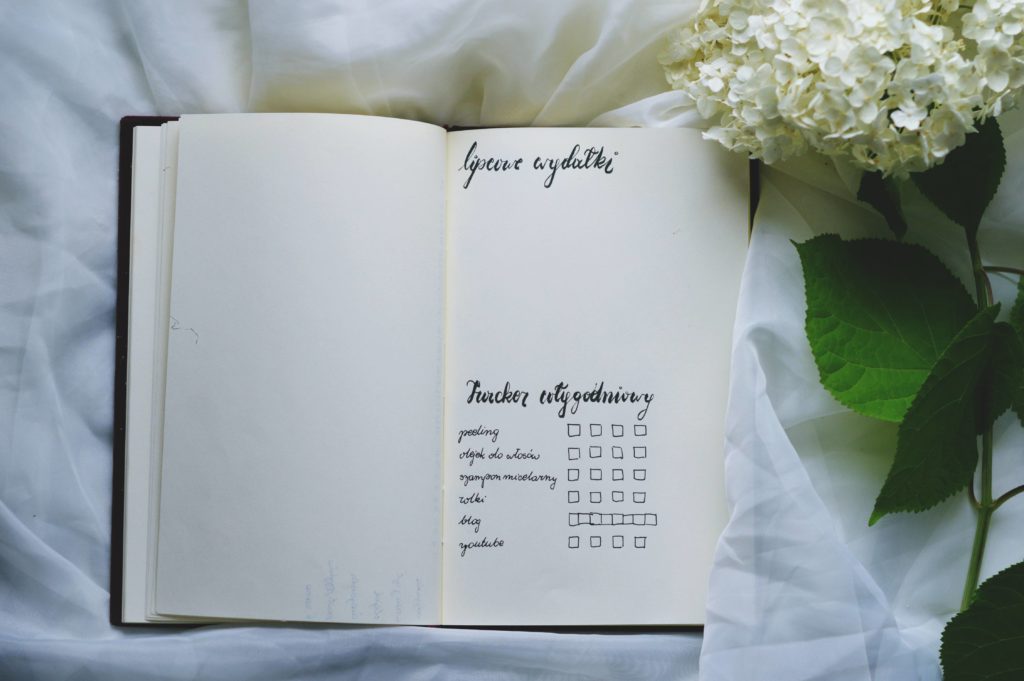 lipcowe wydatki
Tracker cotygodniowy
peeling
olejek do włosów
szampon micelarny
rolki
blog
youtube